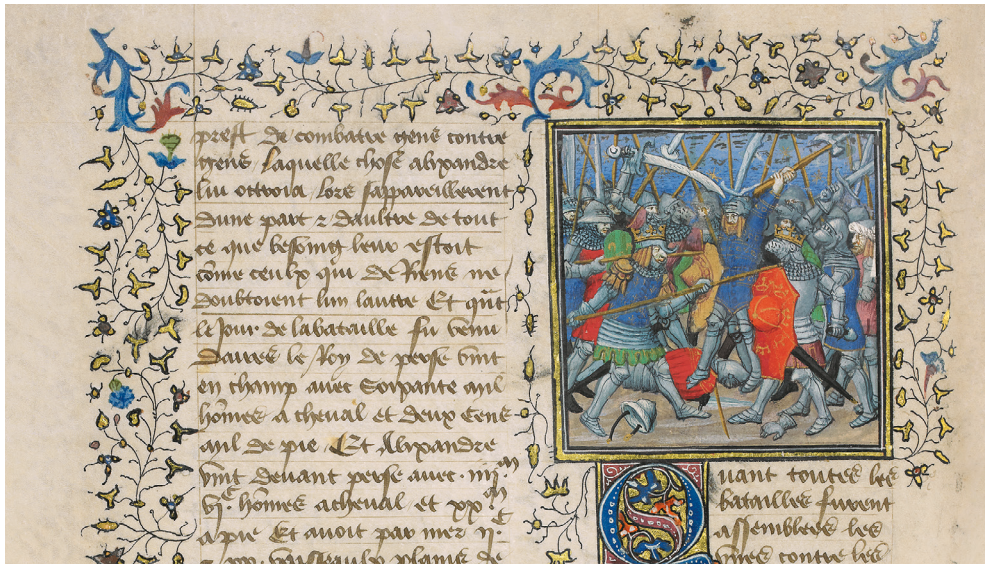 prest de combatre gens contre
gens / laquelle chose alixandre
luy ottroia / lors sappareillerent
dune part ⁊ daultre de tout
ce que besoing leur estoit
come ceulx qui de Riens ne
doubtoient lun lautre Et qñt
le Jour de labataille fu venu
daires le Roy de perse vint
en champ avec Soixante mil
hom̃es a cheval et deux Cens
mil de pie / Et Alixandre
vint devant perse avec iiij m
vj C hom̃es acheval et xx m
a pie Et avoit par mer ij C
vaisseaulx plains de
Quant toutes les
batailles furent
assemblees les
unes contre les